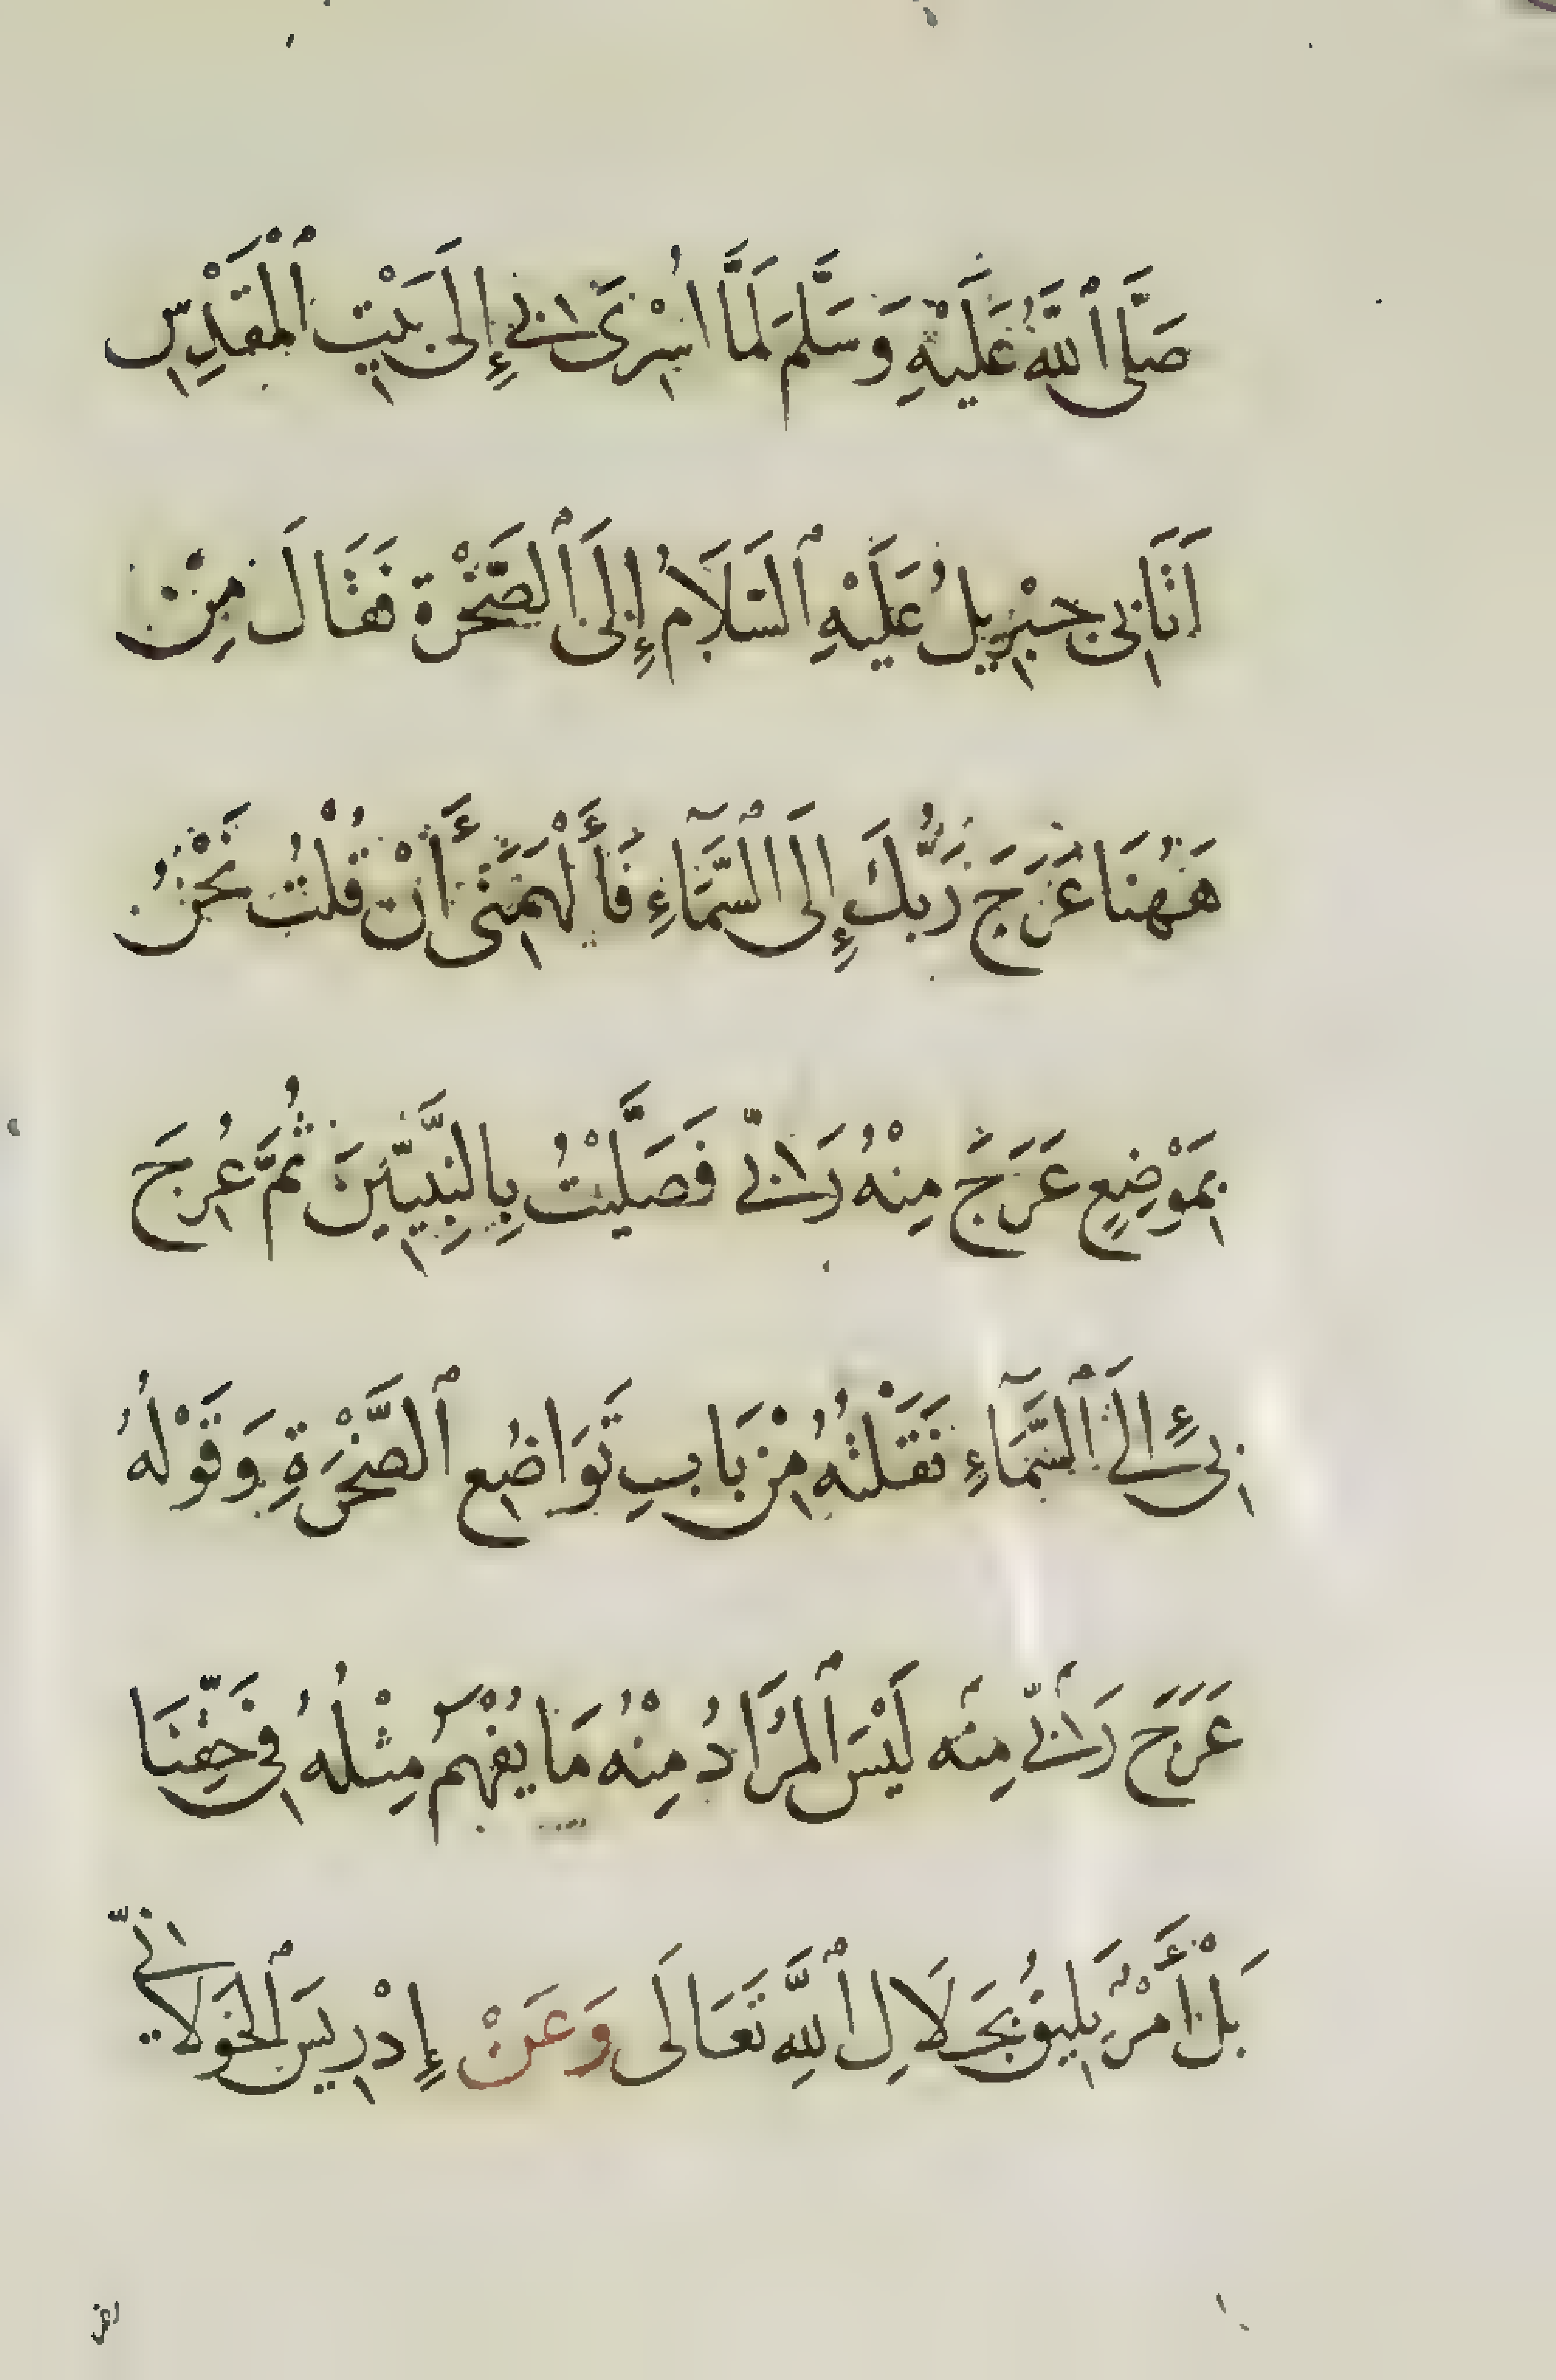 صَلَّى ٱللَّهُ عَلَيْهِ وَسَلَّمَ لَمَّا اُسْرِىَ بِي إِلَى بَيْتِ ٱلْمَقْدِسِ
اَتَانِى جِبْرِيلُ عَلَيْهِ ٱلسَّلَامُ إِلَى ٱلصَّخْرَة فَقَالَ مِنْ
هَهُنَا عَرَجَ رَبُّكَ إِلَى ٱلسَّمَآءِ فَأَلْهَمَنِى أَنْ قُلْتُ نَحْنُ
بِمَوْضِعٍ عَرَجَ مِنْهُ رَبِّي فَصَلَّيْتُ بِالنَّبِيِّينَ ثُمَّ عُرِجَ
بِى إِلَى ٱلسَّمَآءِ نَقَلْتُهُ مِنْ بَابِ تَوَاضُعِ ٱلصَّخْرَةِ وَقَوْلُهُ
عَرَجَ رَبِّي مِنْه لَيْسَ ٱلْمُرَادُ مِنْهُ مَا يُفْهَمُ مِثْلُهُ فِى حَقِّنَا
بَلْ أَمْرٌ يَلِيقُ بِجَلَالِ ٱللَّهِ تَعَالَى وَعَنْ إِدْرِيسَ ٱلْخَوْلَانِيّ